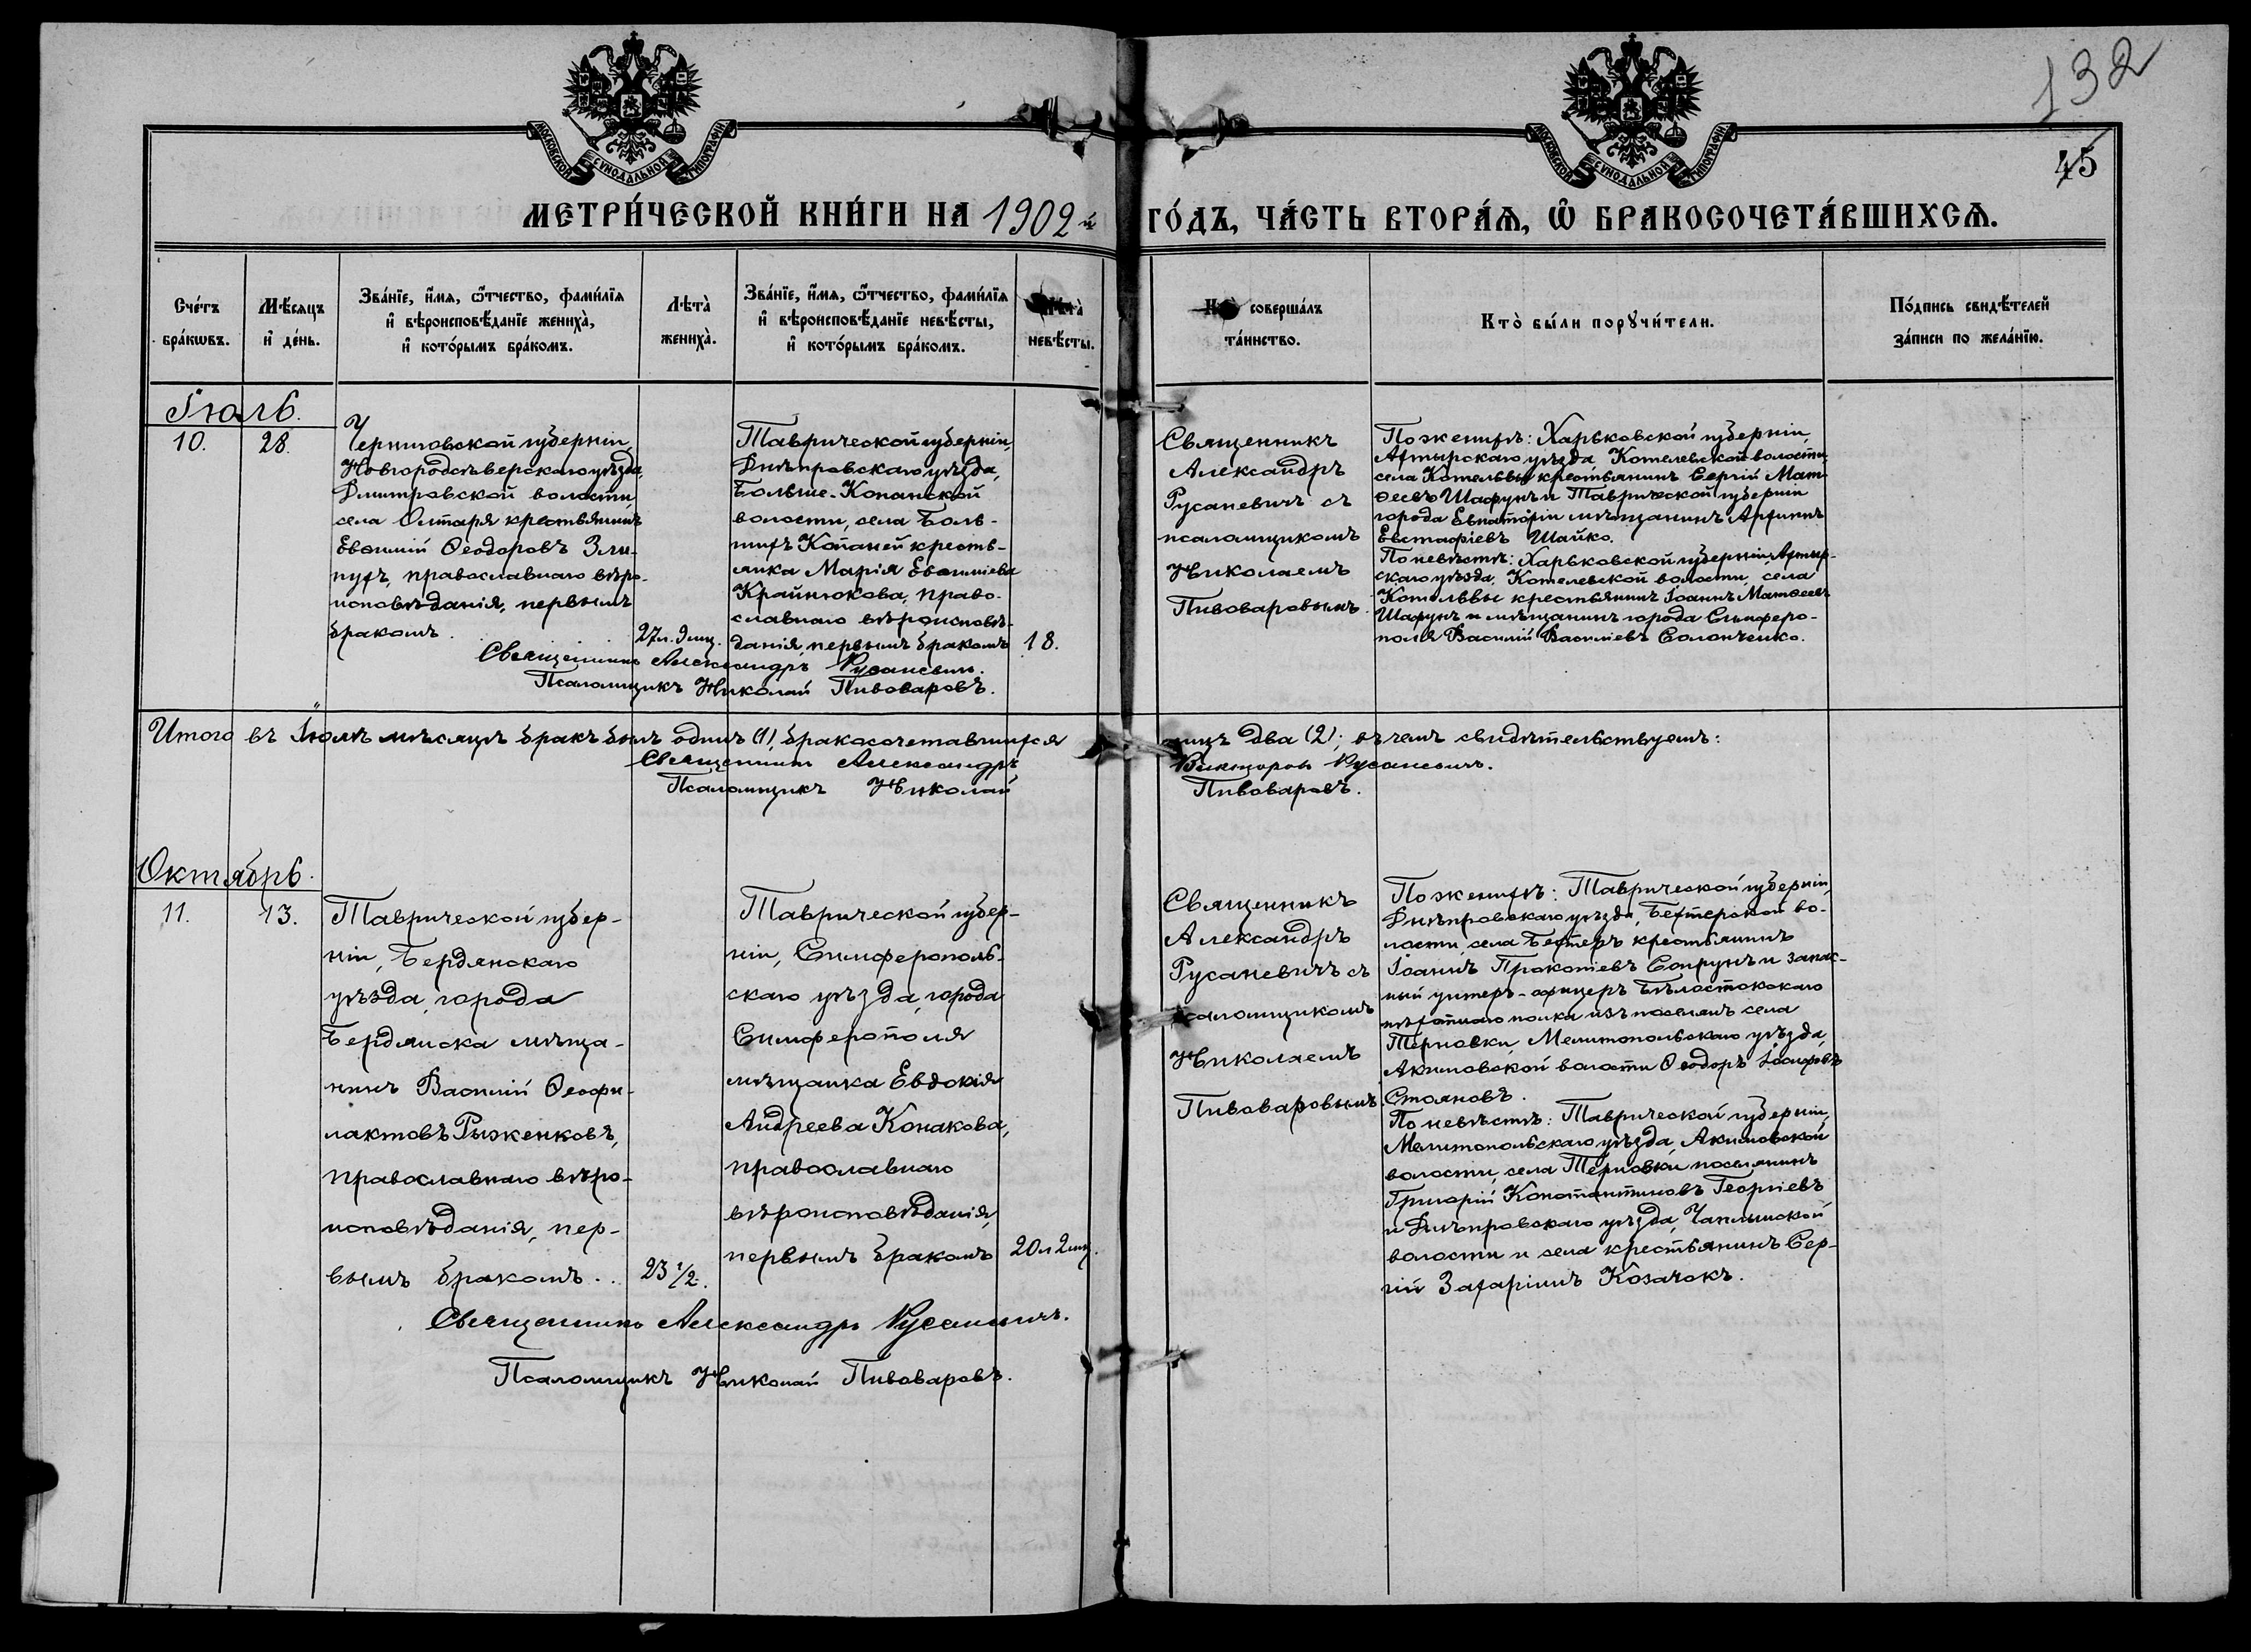 132
45
МОСКОВСКОЙ СѴНОДАЛЬНОЙ ТИПОГРАФІИ
МОСКОВСКОЙ СѴНОДАЛЬНОЙ ТИПОГРАФІИ
МЕТРИ́ЧЕСКОЙ КНИ́ГИ НА 1902 й ГО́ДЪ, ЧА́СТЬ ВТОРА́Ѧ, Ѡ҆ БРАКОСОЧЕТА́ВШИХСѦ.
Сче́тъ
бра́кѡвъ.
Мѣ́сяцъ
и҆ де́нь.
Зва́нїе, и҆́мѧ, ѻ҆́тчество, фами́лїѧ
и҆ вѣроисповѣ́данїе жениха̀,
и҆ кото́рымъ бра́комъ.
Лѣта̀
жениха̀.
Зва́нїе, и҆́мѧ, ѻ҆́тчество, фами́лїѧ
и҆ вѣроисповѣ́данїе невѣ́сты,
и҆ кото́рымъ бра́комъ.
Лѣта̀
невѣ́сты.
Кто̀ соверша́лъ
та́инство.
Кто̀ бы́ли порꙋчи́тели.
По́дпись свидѣ́телей
за́писи по жела́нїю.
Іюль.
10.
28.
Черниговской губерніи,
Новгородсѣверскаго уѣзда,
Дмитровской волости,
села Олтаря крестьянинъ
Евѳимій Ѳеодоровъ
православнаго вѣро-
исповѣданія, первымъ
бракомъ.
27 л. 9 мц.
Таврической губерніи,
Днѣпровскаго уѣзда,
Больше-Копанской
волости, села Боль-
шихъ Копаней кресть-
янка Марія Евѳиміева
Крайнюкова, право-
славнаго вѣроисповѣ-
данія, первымъ бракомъ
18.
Священникъ
Александръ
Русаневичъ съ
псаломщикомъ
Николаемъ
Пивоваровымъ.
По женихѣ: Харьковской губерніи,
Ахтырскаго уѣзда Котелевской волости,
села Котельвы крестьянинъ Сергій Мат-
ѳеевъ Шафунъ и Таврической губерніи
города Евпаторіи мѣщанинъ Архипъ
Евстафіевъ Шайко.
По невѣстѣ: Харьковской губерніи, Ахтыр-
скаго уѣзда, Котелевской волости, села
Котельвы крестьянинъ Іоаннъ Матѳеевъ
Шафунъ и мѣщанинъ города Симферо-
поля Василій Василіевъ Солонченко.
Священникъ Александръ Русаневичъ.
Псаломщикъ Николай Пивоваровъ.
Итого въ Іюлѣ мѣсяцѣ бракъ былъ одинъ (1), бракосочетавшихся лицъ два (2); въ чемъ свидѣтельствуемъ:
Священникъ Александръ Викторовъ Русаневичъ.
Псаломщикъ Николай Пивоваровъ.
Октябрь.
11.
13.
Таврической губер-
ніи, Бердянскаго
уѣзда, города
Бердянска мѣща-
нинъ Василій Ѳеофи-
лактовъ Рыженковъ,
православнаго вѣро-
исповѣданія, пер-
вымъ бракомъ...
23 1/2.
Таврической губер-
ніи, Симферополь-
скаго уѣзда, города
Симферополя
мѣщанка Евдокія
Андреева Конакова,
православнаго
вѣроисповѣданія,
первымъ бракомъ
20 л 2 мц.
Священникъ
Александръ
Русаневичъ съ
псаломщикомъ
Николаемъ
Пивоваровымъ.
По женихѣ: Таврической губерніи,
Днѣпровскаго уѣзда, Бехтерской во-
лости, села Бехтеръ крестьянинъ
Іоаннъ Прокопіевъ Сопрунъ и запас-
ный унтеръ-офицеръ Бѣлостокскаго
пѣхотнаго полка изъ поселянъ села
Терновки, Мелитопольскаго уѣзда,
Акимовской волости Ѳеодоръ Іосифовъ
Стояновъ.
По невѣстѣ: Таврической губерніи,
Мелитопольскаго уѣзда, Акимовской
волости, села Терновки поселянинъ
Григорій Константиновъ Георгіевъ
и Днѣпровскаго уѣзда, Чаплинской
волости и села крестьянинъ Сер-
гій Захаріинъ Козачокъ.
Священникъ Александръ Русаневичъ.
Псаломщикъ Николай Пивоваровъ.